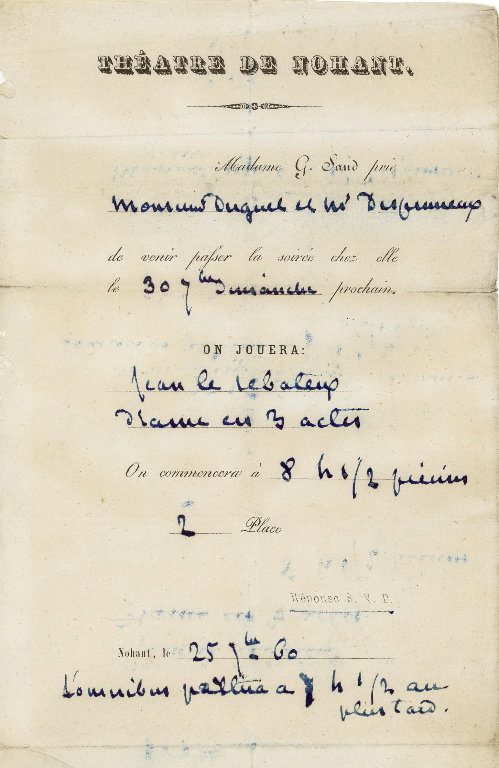 THÉATRE DE NOHANT.
Madame G. Sand prie
Monsieur Duguet et Mr
de venir passer la soirée chez elle
le 30 7bre Dimanche prochain.
ON JOUERA:
Jean le rebateux
Drame en 3 actes
On commencera à 8 h 1/2 précises
2 Place
Réponse S. V. P.
Nohant, le 25 7bre 60
L'omnibus partira a 7 h 1/2 au
plus tard.